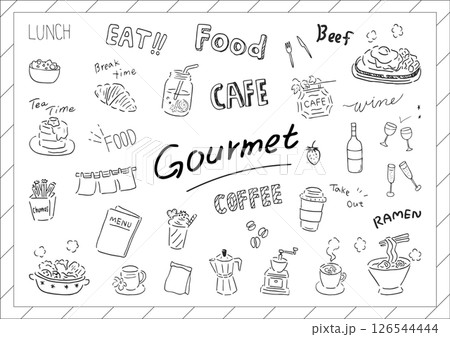 LUNCH
EAT!!
Food
Beef
Break
time
CAFE
CAFE
wine
Tea
Time
FOOD
Gourmet
churros
MENU
COFFEE
Take
Out
RAMEN
PIXTA
pixta.jp - 126544444